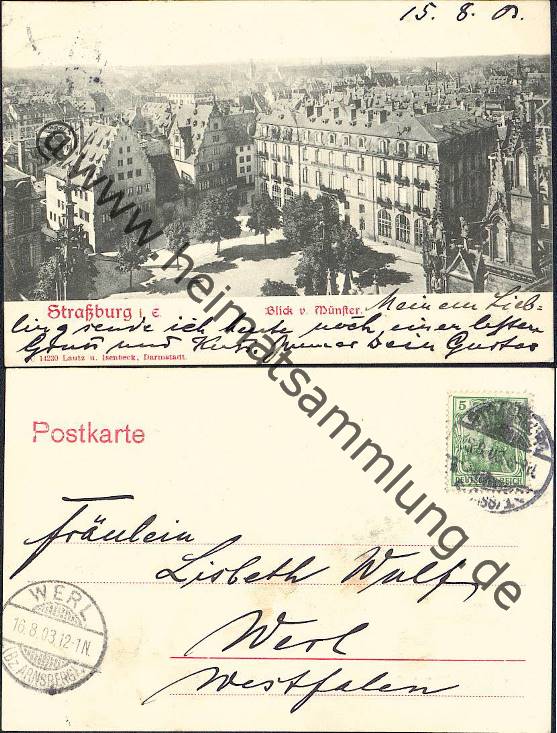 15. 8. 03.
Straßburg i. E. Blick v. Münster. Meinem Lieb-
ling sende ich heute noch einen letzten
Gruss und Kuss Immer Dein Gustav
14230 Lautz u. Isenbeck, Darmstadt.
www.heimatsammlung.de
Postkarte
5
DEUTSCHES REICH
Fräulein
Lisbeth Wulf,
Werl
Westfalen
WERL
16.8.03.12-1N.
(Bz. ARNSBERG)